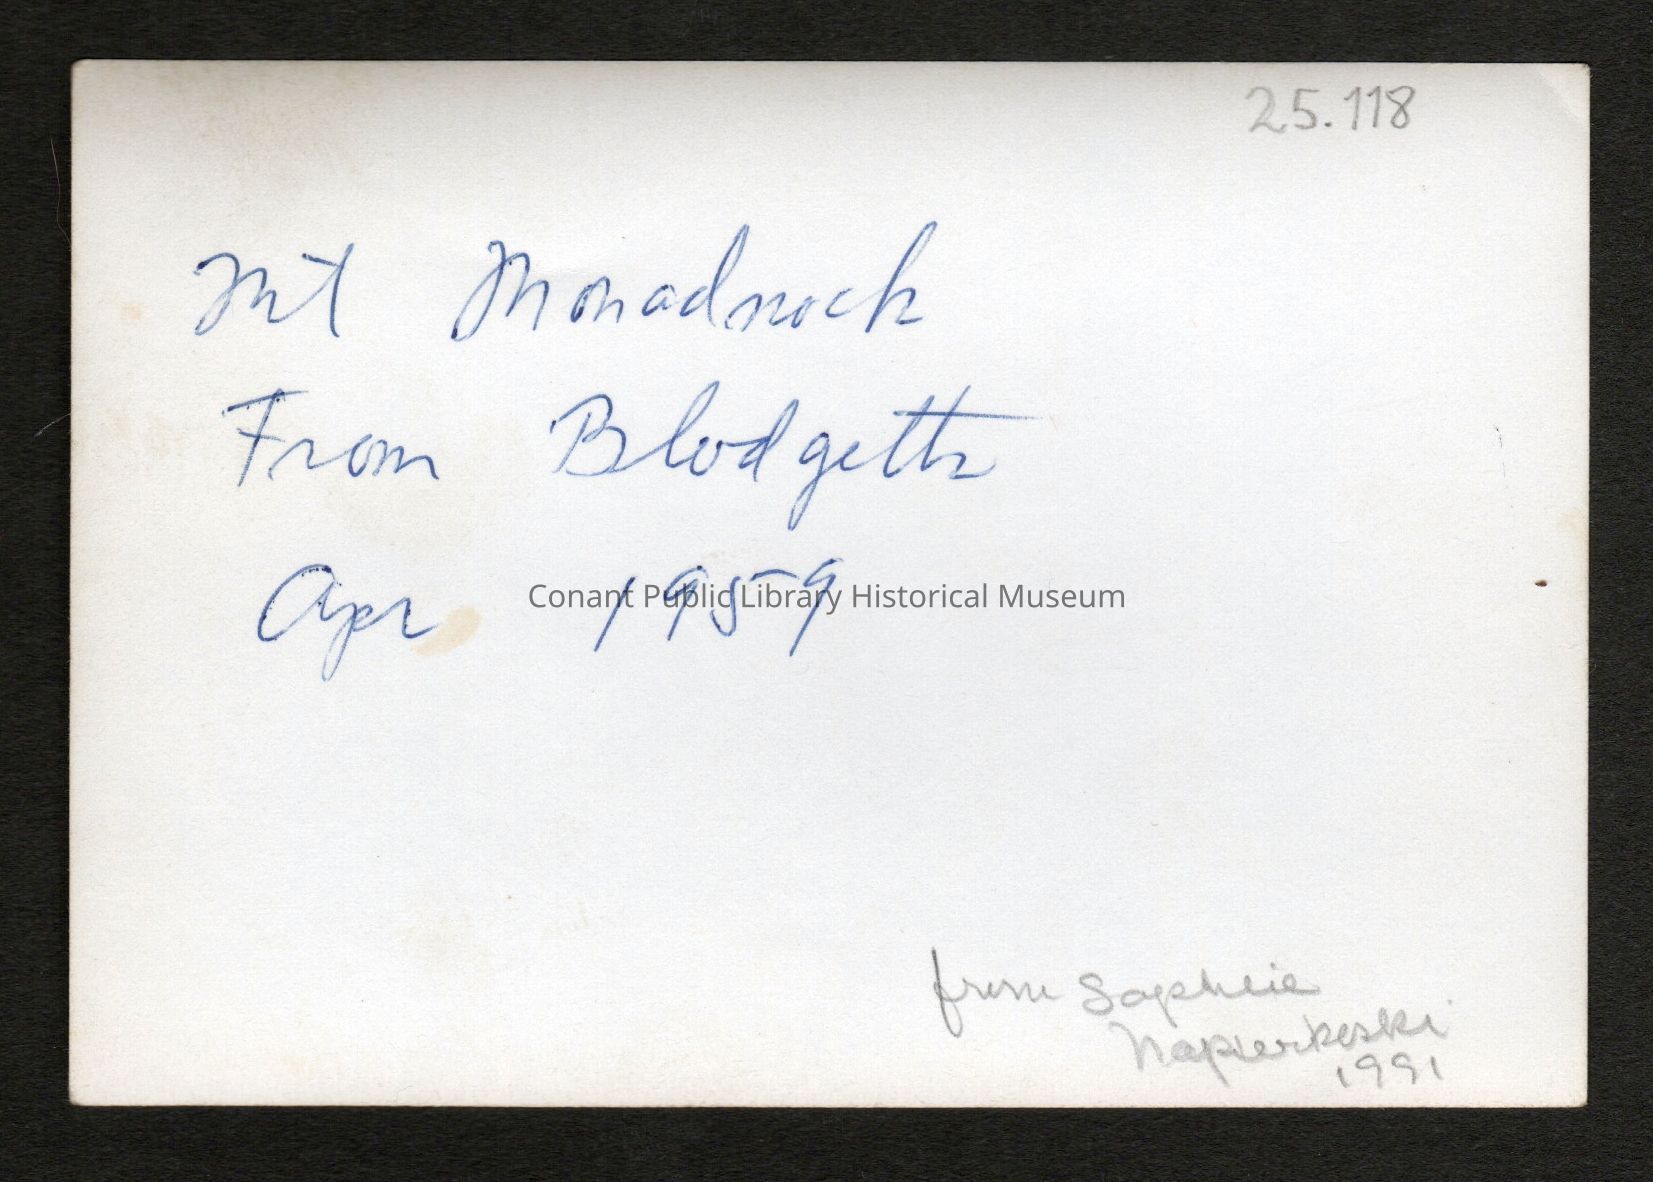 25.118
Mt Monadnock
From Blodgetts
Apr 1959
Conant Public Library Historical Museum
from Sopheie
Napierkoski
1991